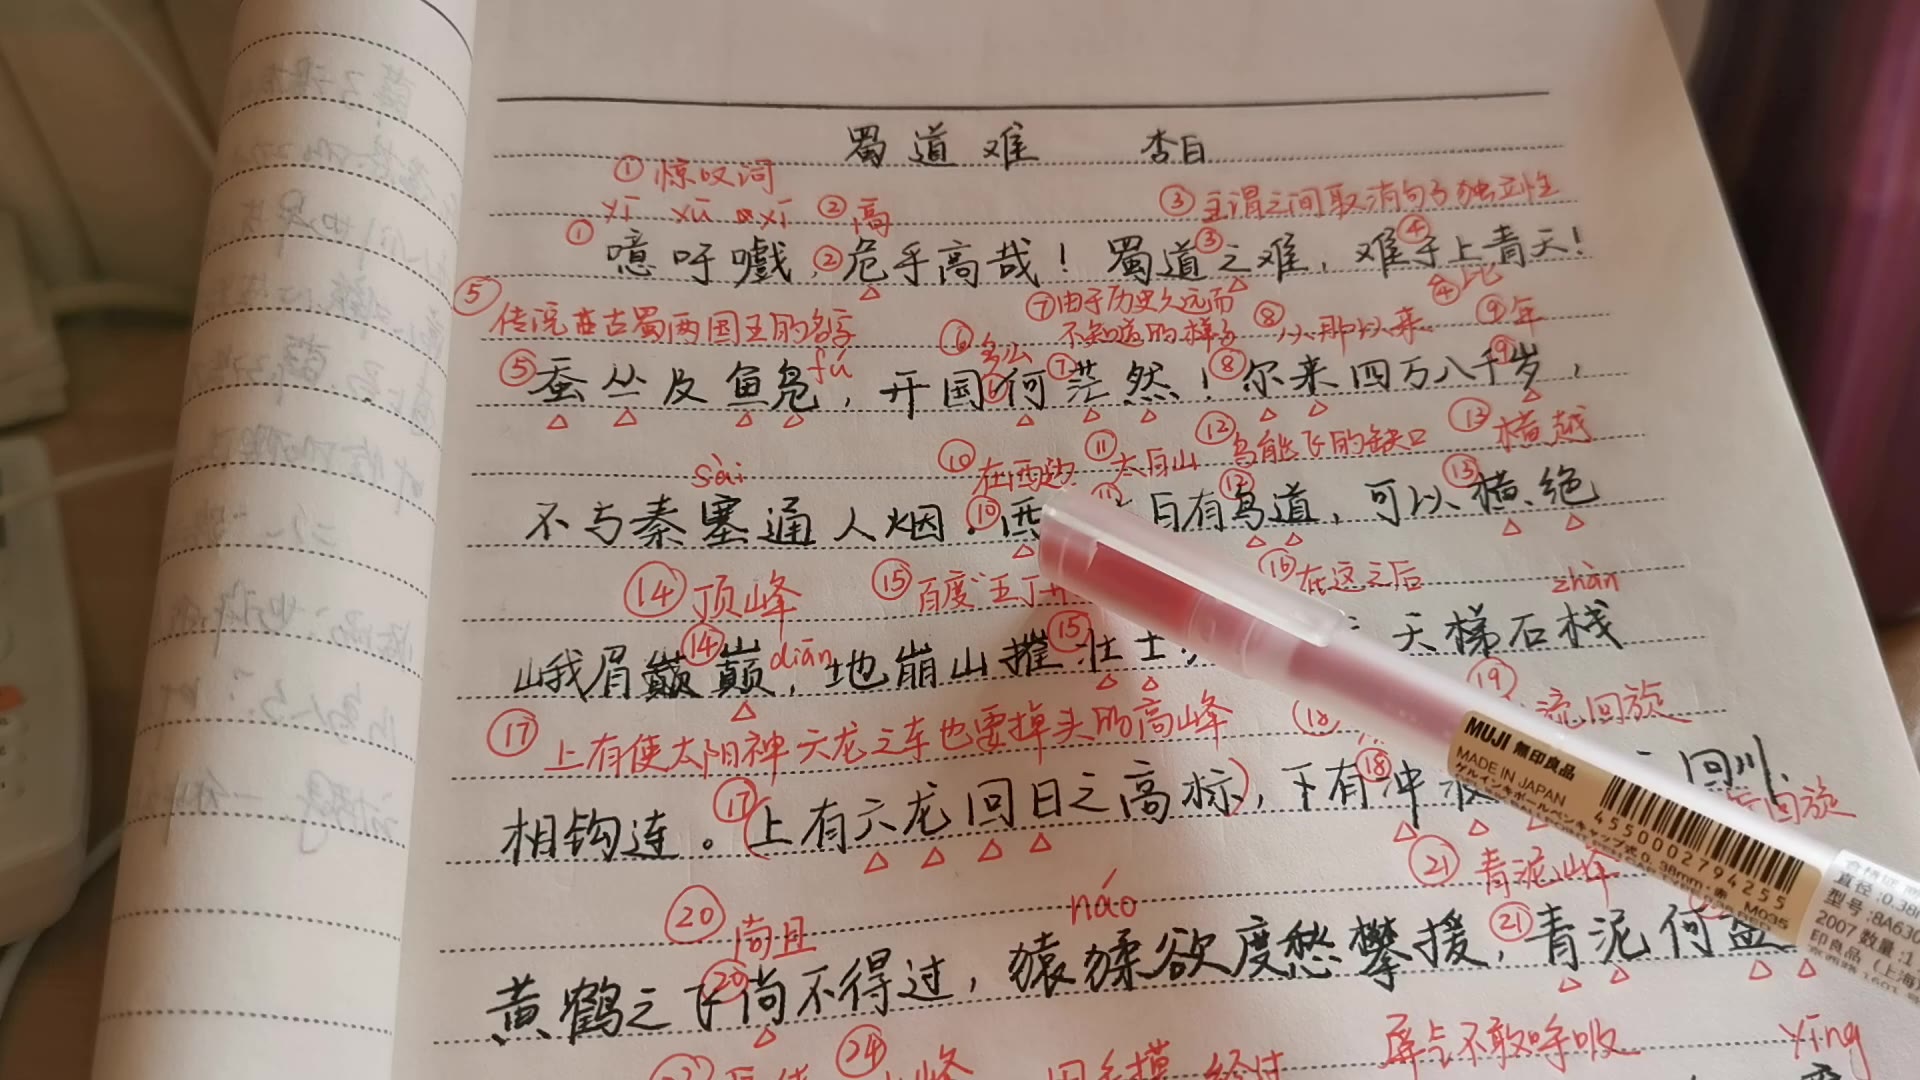 蜀道难 李白
①惊叹词
yī xū xī ②高 ③主谓之间取消句子独立性
①噫吁嚱，②危乎高哉！蜀道③之难，难④于上青天！
④比
⑤传说中古蜀两国王的名字 ⑥多么 ⑦由于历史久远而不知道的样子 ⑧从那以来 ⑨年
fú
⑤蚕丛及鱼凫，开国⑥何⑦茫然！⑧尔来四万八千⑨岁，
sài ⑩在西边 ⑪太白山 ⑫鸟能飞的缺口 ⑬横越
不与秦塞通人烟。⑩西 白有⑫鸟道，可以⑬横绝
⑭顶峰 ⑮百度"五丁 ⑯在这之后 zhàn
峨眉⑭巅，diān 地崩山摧⑮壮士 天梯石栈
⑰上有使太阳神六龙之车也要掉头的高峰 ⑱ ⑲ 流回旋
相钩连。⑰(上有六龙回日之高标)，下有⑱冲 回川.
回旋
⑳尚且 náo ㉑青泥峰
黄鹤之飞⑳尚不得过，猿猱欲度愁攀援，㉑青泥何盘
㉔ 峰 用手摸 经过 屏气不敢呼吸 yīng
MUJI 無印良品
MADE IN JAPAN
ゲルインキボールペンキャップ式0.38mm・赤 M035
4550002794255
直径:0.38
型号:8A630
2007 数量:1
印良品(上海